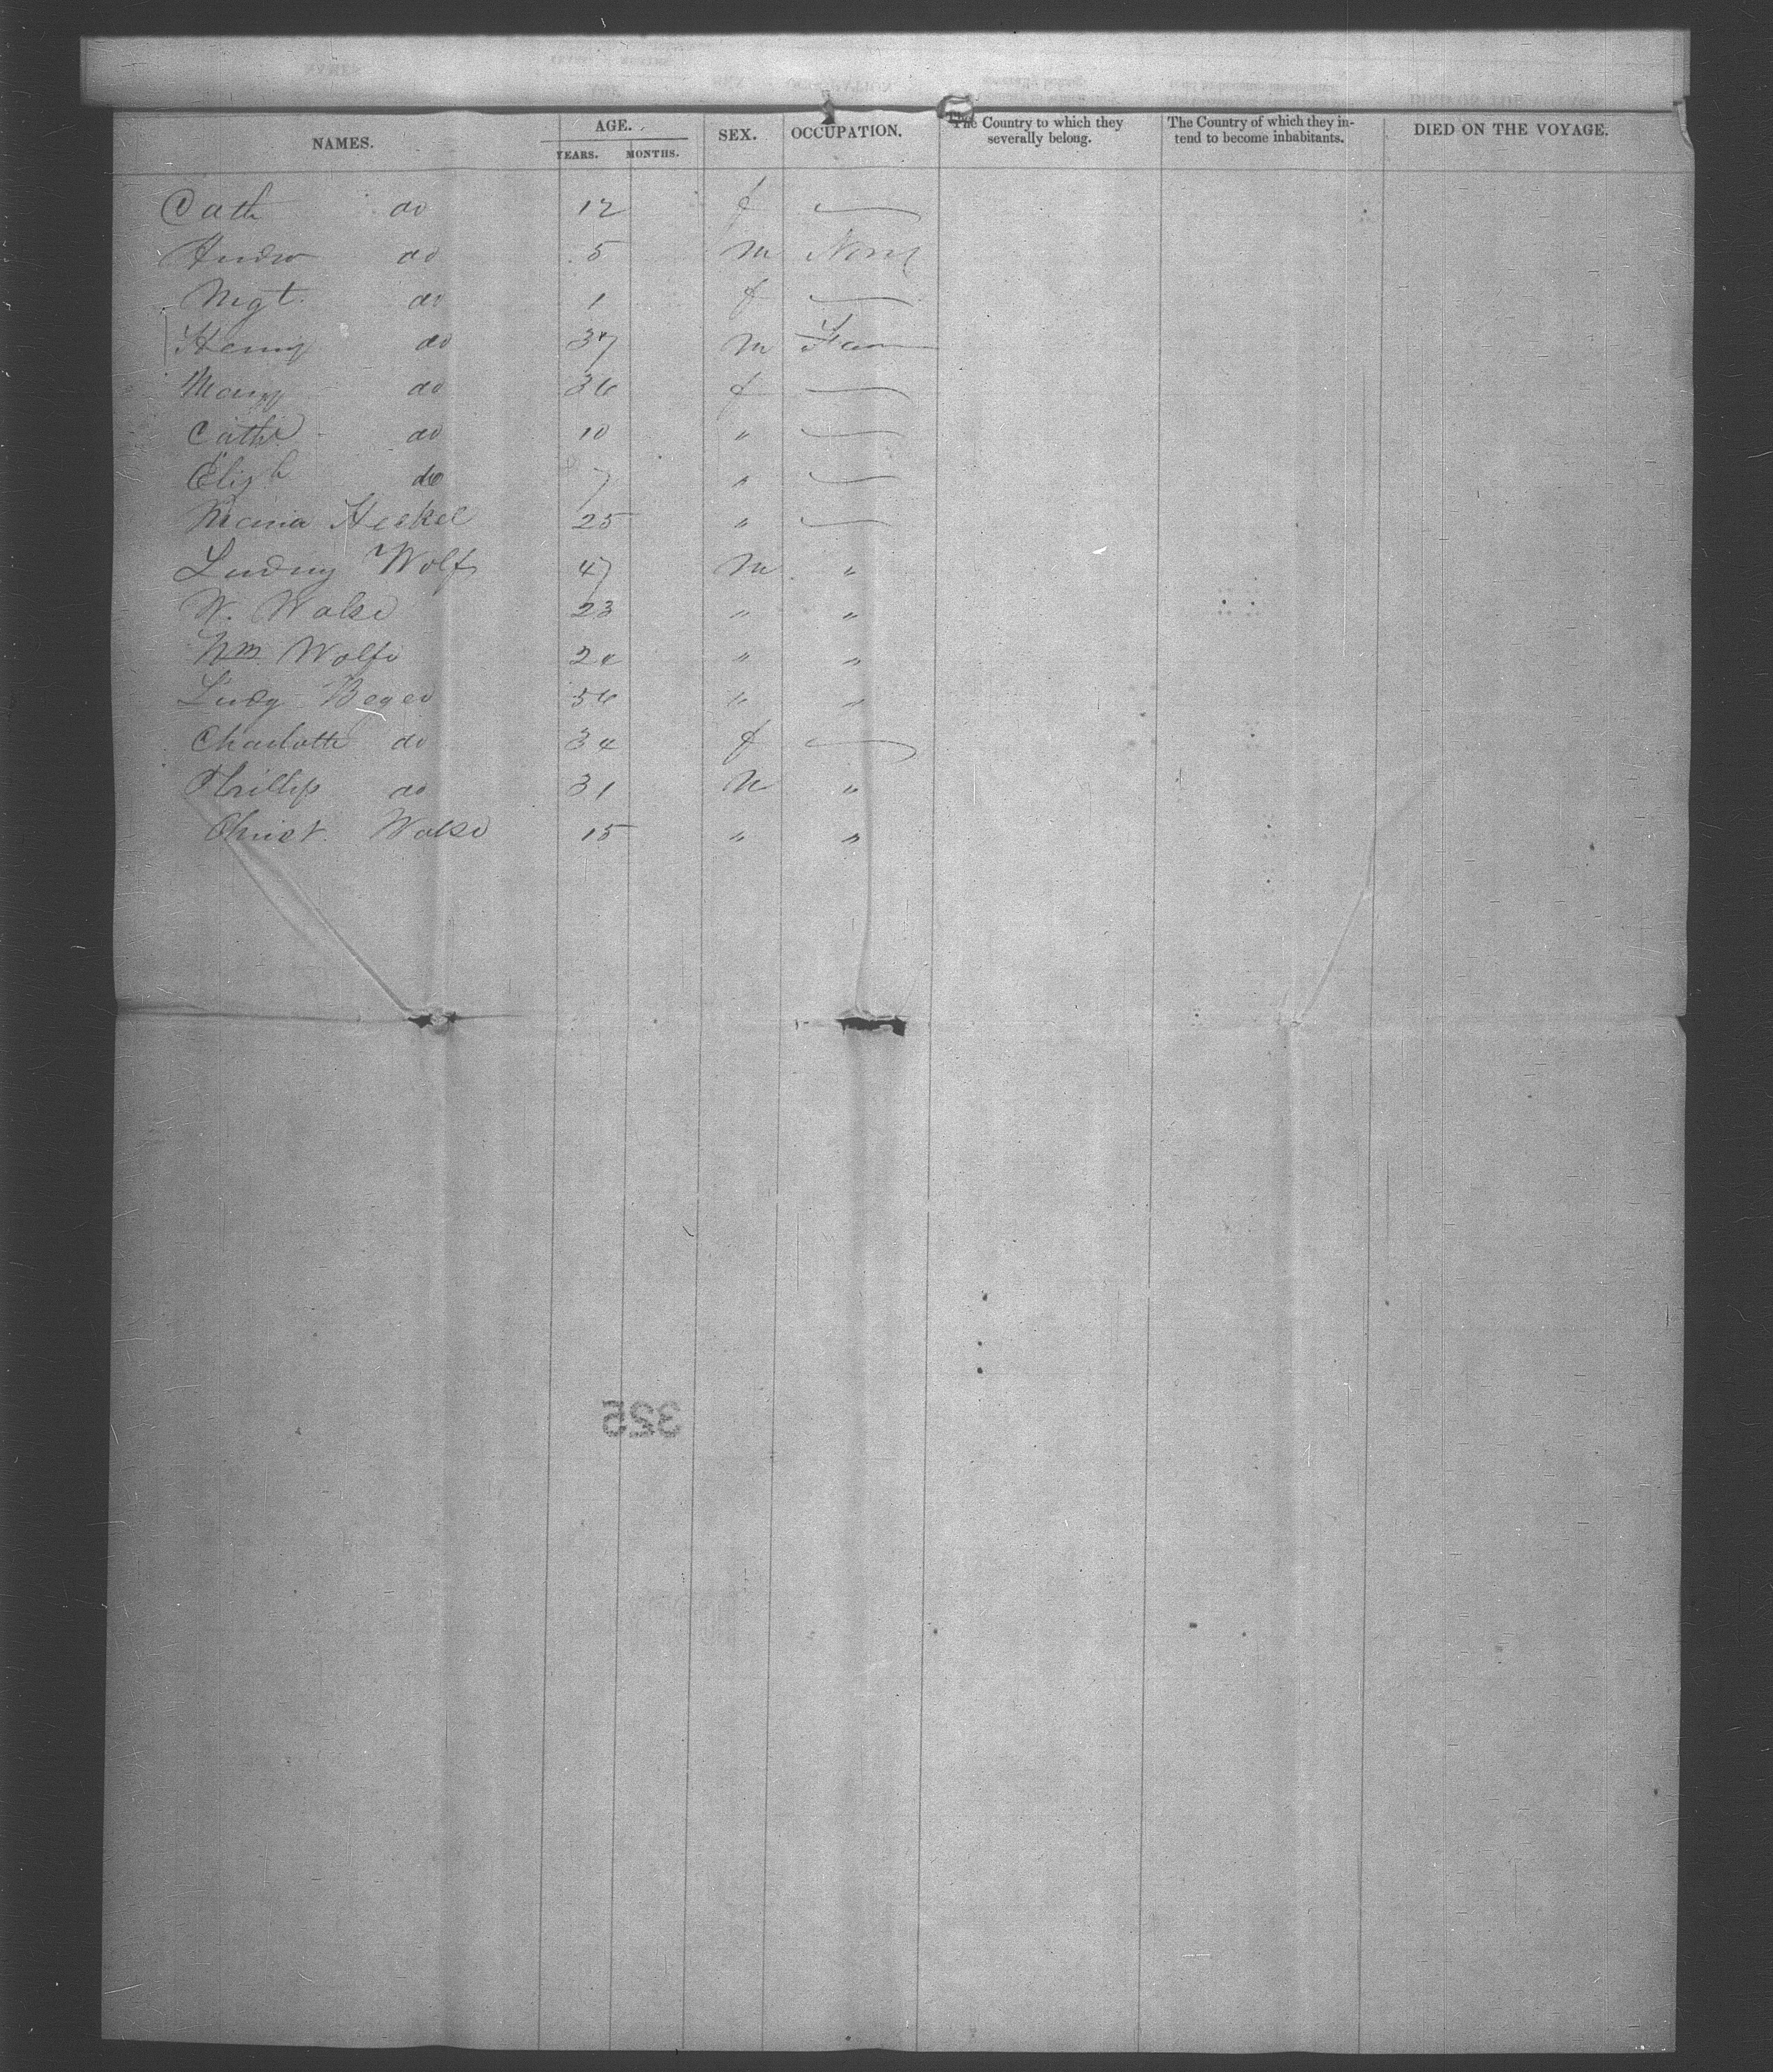 NAMES. AGE. YEARS. MONTHS. SEX. OCCUPATION. The Country to which they severally belong. The Country of which they intend to become inhabitants. DIED ON THE VOYAGE.
Cath do 12 f
Andw do 5 m None
Mgt. do 1 f
Henry do 37 m Farm
Mary do 36 f
Cathe do 10 "
Elizh do 7 "
Maria Heskel 25 "
Ludwig Wolf 47 m "
W. Walse 23 " "
Wm Wolfe 24 " "
Ludg Beger 56 " "
Charlotte do 34 f
Phillip do 31 m "
Christ. Walse 15 " "
325